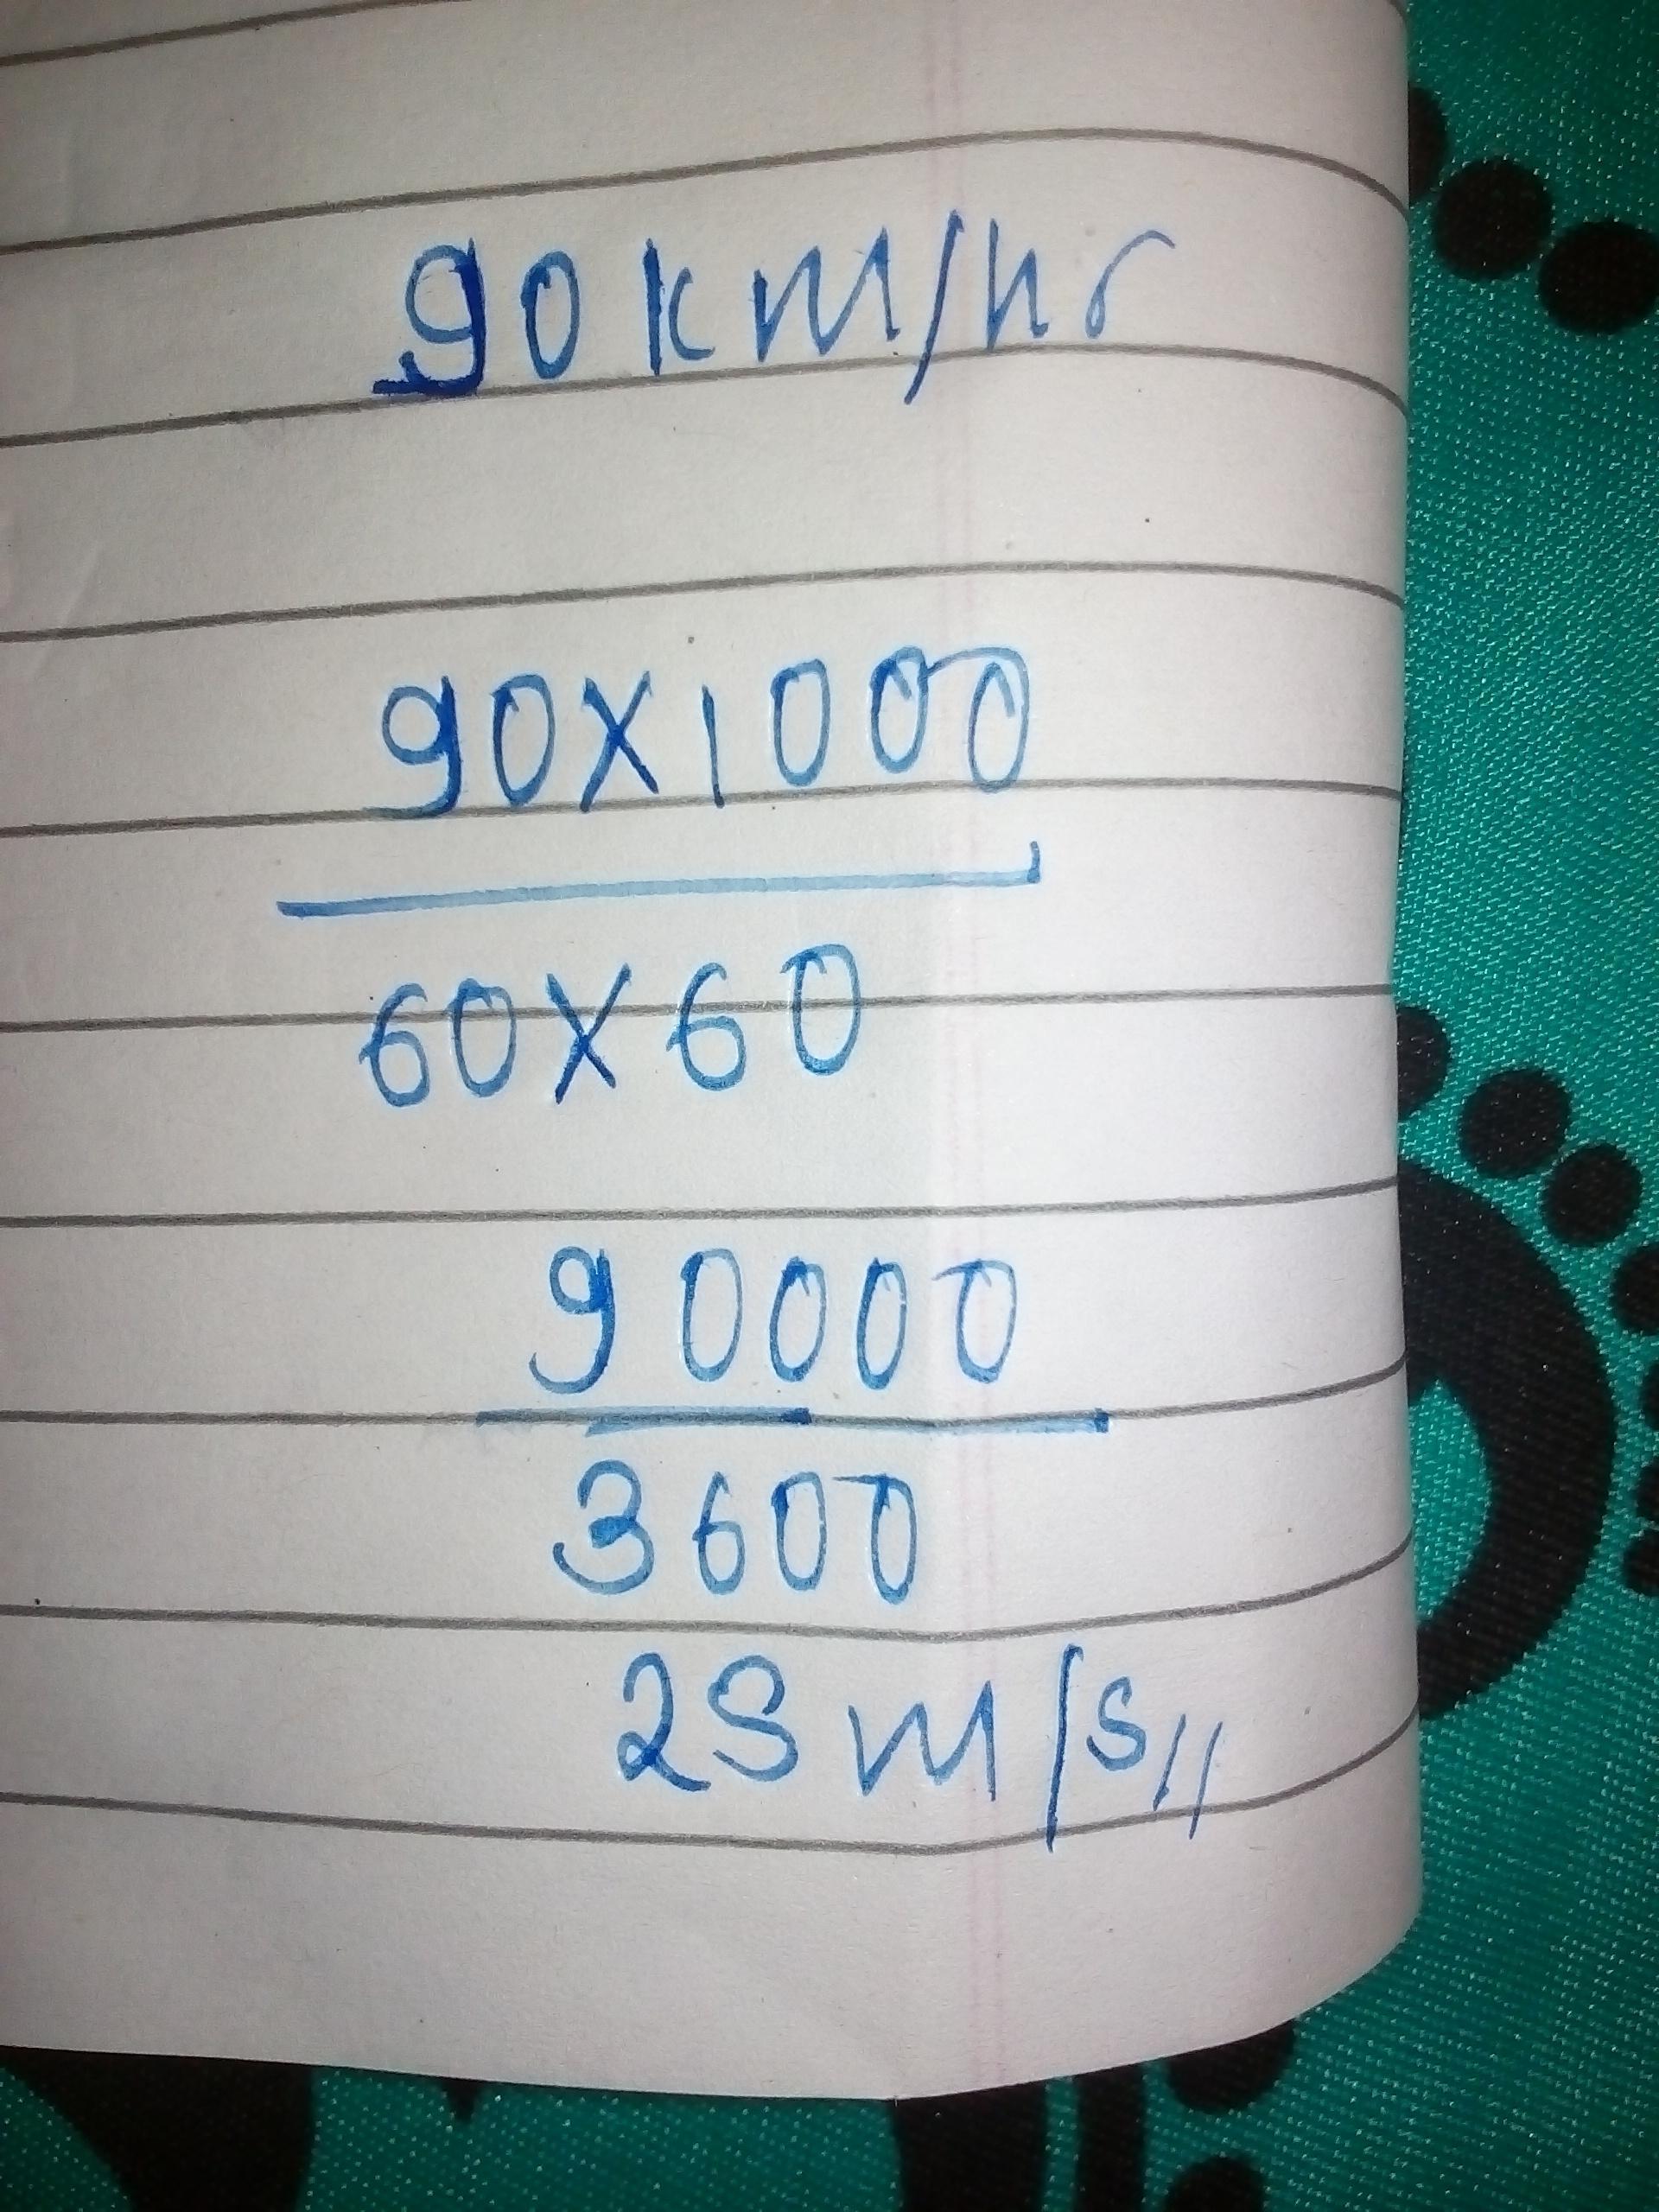 90 km/hr
90x1000
60x60
90000
3600
25 m/s//